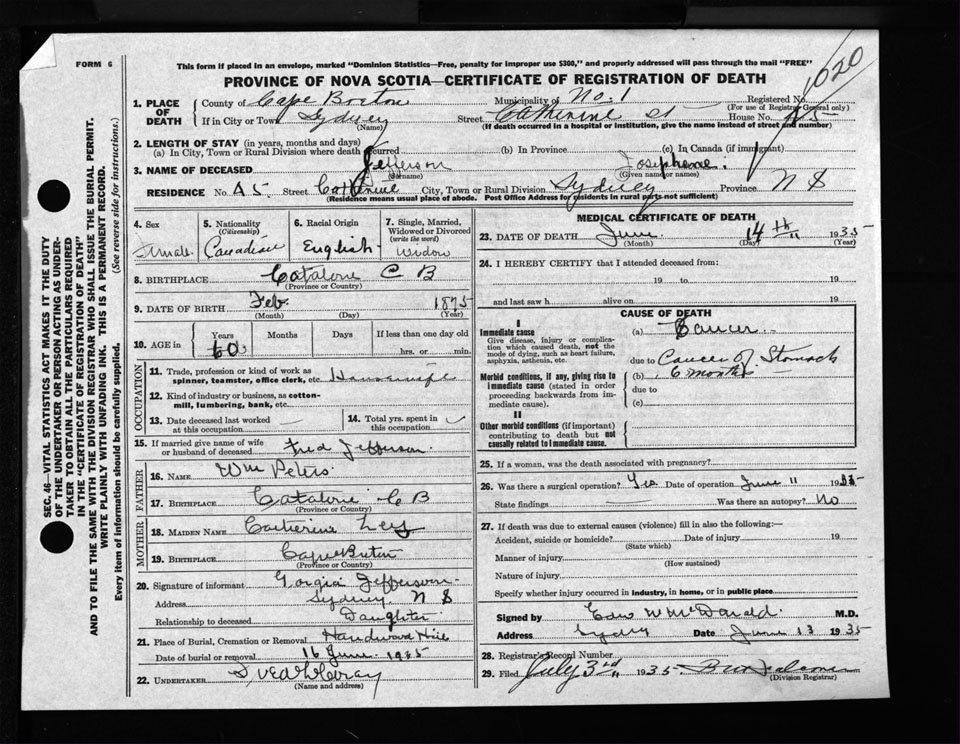 FORM 6
This form if placed in an envelope, marked "Dominion Statistics—Free, penalty for improper use $300," and properly addressed will pass through the mail "FREE"
1020
PROVINCE OF NOVA SCOTIA—CERTIFICATE OF REGISTRATION OF DEATH
1. PLACE OF DEATH
County of Cape Breton Municipality of No. 1 Registered No.
(For use of Registrar General only)
If in City or Town Sydney Street Catherine St House No. 45
(Name) (If death occurred in a hospital or institution, give the name instead of street and number)
2. LENGTH OF STAY (in years, months and days)
(a) In City, Town or Rural Division where death occurred (b) In Province (c) In Canada (if immigrant)
3. NAME OF DECEASED Jefferson Josephene
(Surname) (Given name or names)
RESIDENCE No. 45 Street Catherine City, Town or Rural Division Sydney Province N S
(Residence means usual place of abode. Post Office Address for residents in rural parts not sufficient)
4. Sex
Female
5. Nationality
(Citizenship)
Canadian
6. Racial Origin
English
7. Single, Married, Widowed or Divorced
(write the word)
Widow
8. BIRTHPLACE Catalone C B
(Province or Country)
9. DATE OF BIRTH Feb. 1875
(Month) (Day) (Year)
10. AGE in Years Months Days If less than one day old
60 hrs. or min.
OCCUPATION
11. Trade, profession or kind of work as spinner, teamster, office clerk, etc. Housewife
12. Kind of industry or business, as cotton-mill, lumbering, bank, etc.
13. Date deceased last worked at this occupation
14. Total yrs. spent in this occupation
15. If married give name of wife or husband of deceased Fred Jefferson
FATHER
16. NAME Wm Peters
17. BIRTHPLACE Catalone C B
(Province or Country)
MOTHER
18. MAIDEN NAME Catherine Ley
19. BIRTHPLACE Cape Breton
(Province or Country)
20. Signature of informant Georgia Jefferson
Address Sydney N S
Relationship to deceased Daughter
21. Place of Burial, Cremation or Removal Hardwood Hill
Date of burial or removal 16 June 1935
22. UNDERTAKER
(Name and address)
MEDICAL CERTIFICATE OF DEATH
23. DATE OF DEATH June 14th 1935
(Month) (Day) (Year)
24. I HEREBY CERTIFY that I attended deceased from:
19 to 19
and last saw h alive on 19
CAUSE OF DEATH
I
Immediate cause
Give disease, injury or complication which caused death, not the mode of dying, such as heart failure, asphyxia, asthenia, etc.
(a) Cancer
due to Cancer of Stomach
Morbid conditions, if any, giving rise to immediate cause (stated in order proceeding backwards from immediate cause).
(b) 6 months
due to
(c)
II
Other morbid conditions (if important) contributing to death but not causally related to immediate cause.
25. If a woman, was the death associated with pregnancy?
26. Was there a surgical operation? Yes Date of operation June 11 1935
State findings Was there an autopsy? No
27. If death was due to external causes (violence) fill in also the following:—
Accident, suicide or homicide? Date of injury 19
(State which)
Manner of injury
(How sustained)
Nature of injury
Specify whether injury occurred in industry, in home, or in public place
Signed by Edw W McDonald M.D.
Address Sydney Date June 13 1935
28. Registrar's Record Number
29. Filed July 3rd 1935 Falconer
(Division Registrar)
SEC. 46—VITAL STATISTICS ACT MAKES IT THE DUTY
OF THE UNDERTAKER OR PERSON ACTING AS UNDER-
TAKER TO OBTAIN ALL THE PARTICULARS REQUIRED
IN THE "CERTIFICATE OF REGISTRATION OF DEATH"
AND TO FILE THE SAME WITH THE DIVISION REGISTRAR WHO SHALL ISSUE THE BURIAL PERMIT.
WRITE PLAINLY WITH UNFADING INK. THIS IS A PERMANENT RECORD.
Every item of information should be carefully supplied. (See reverse side for instructions.)